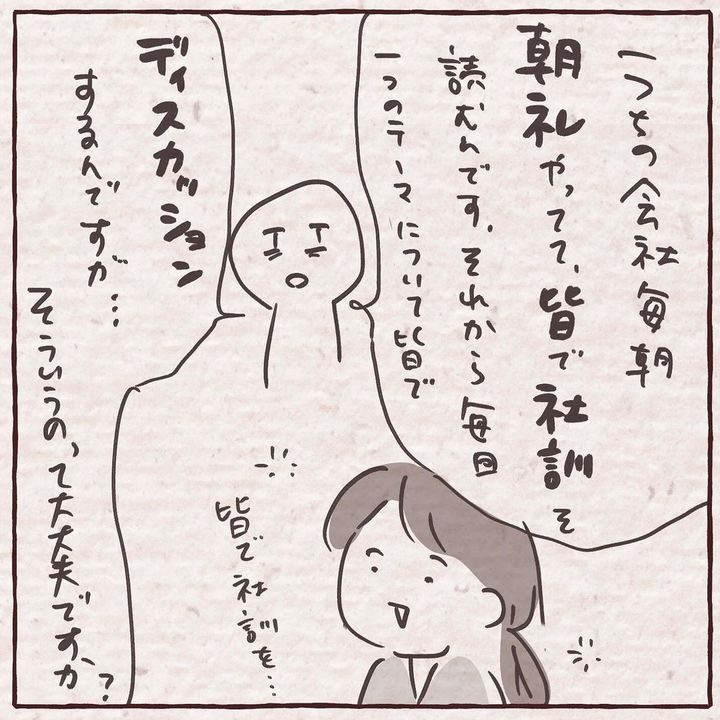 うちの会社毎朝
朝礼やってて、皆で社訓を
読むんです。それから毎日
一つのテーマについて皆で
ディスカッション
するんですが…
そういうの、て大丈夫ですか?
皆で社訓を…